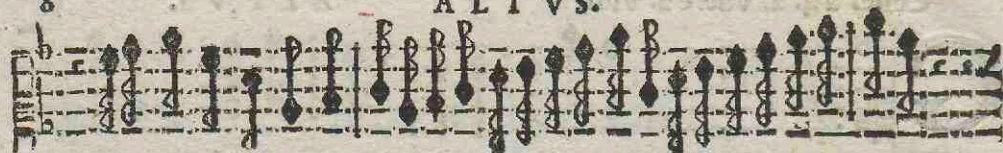 8 ALTVS.